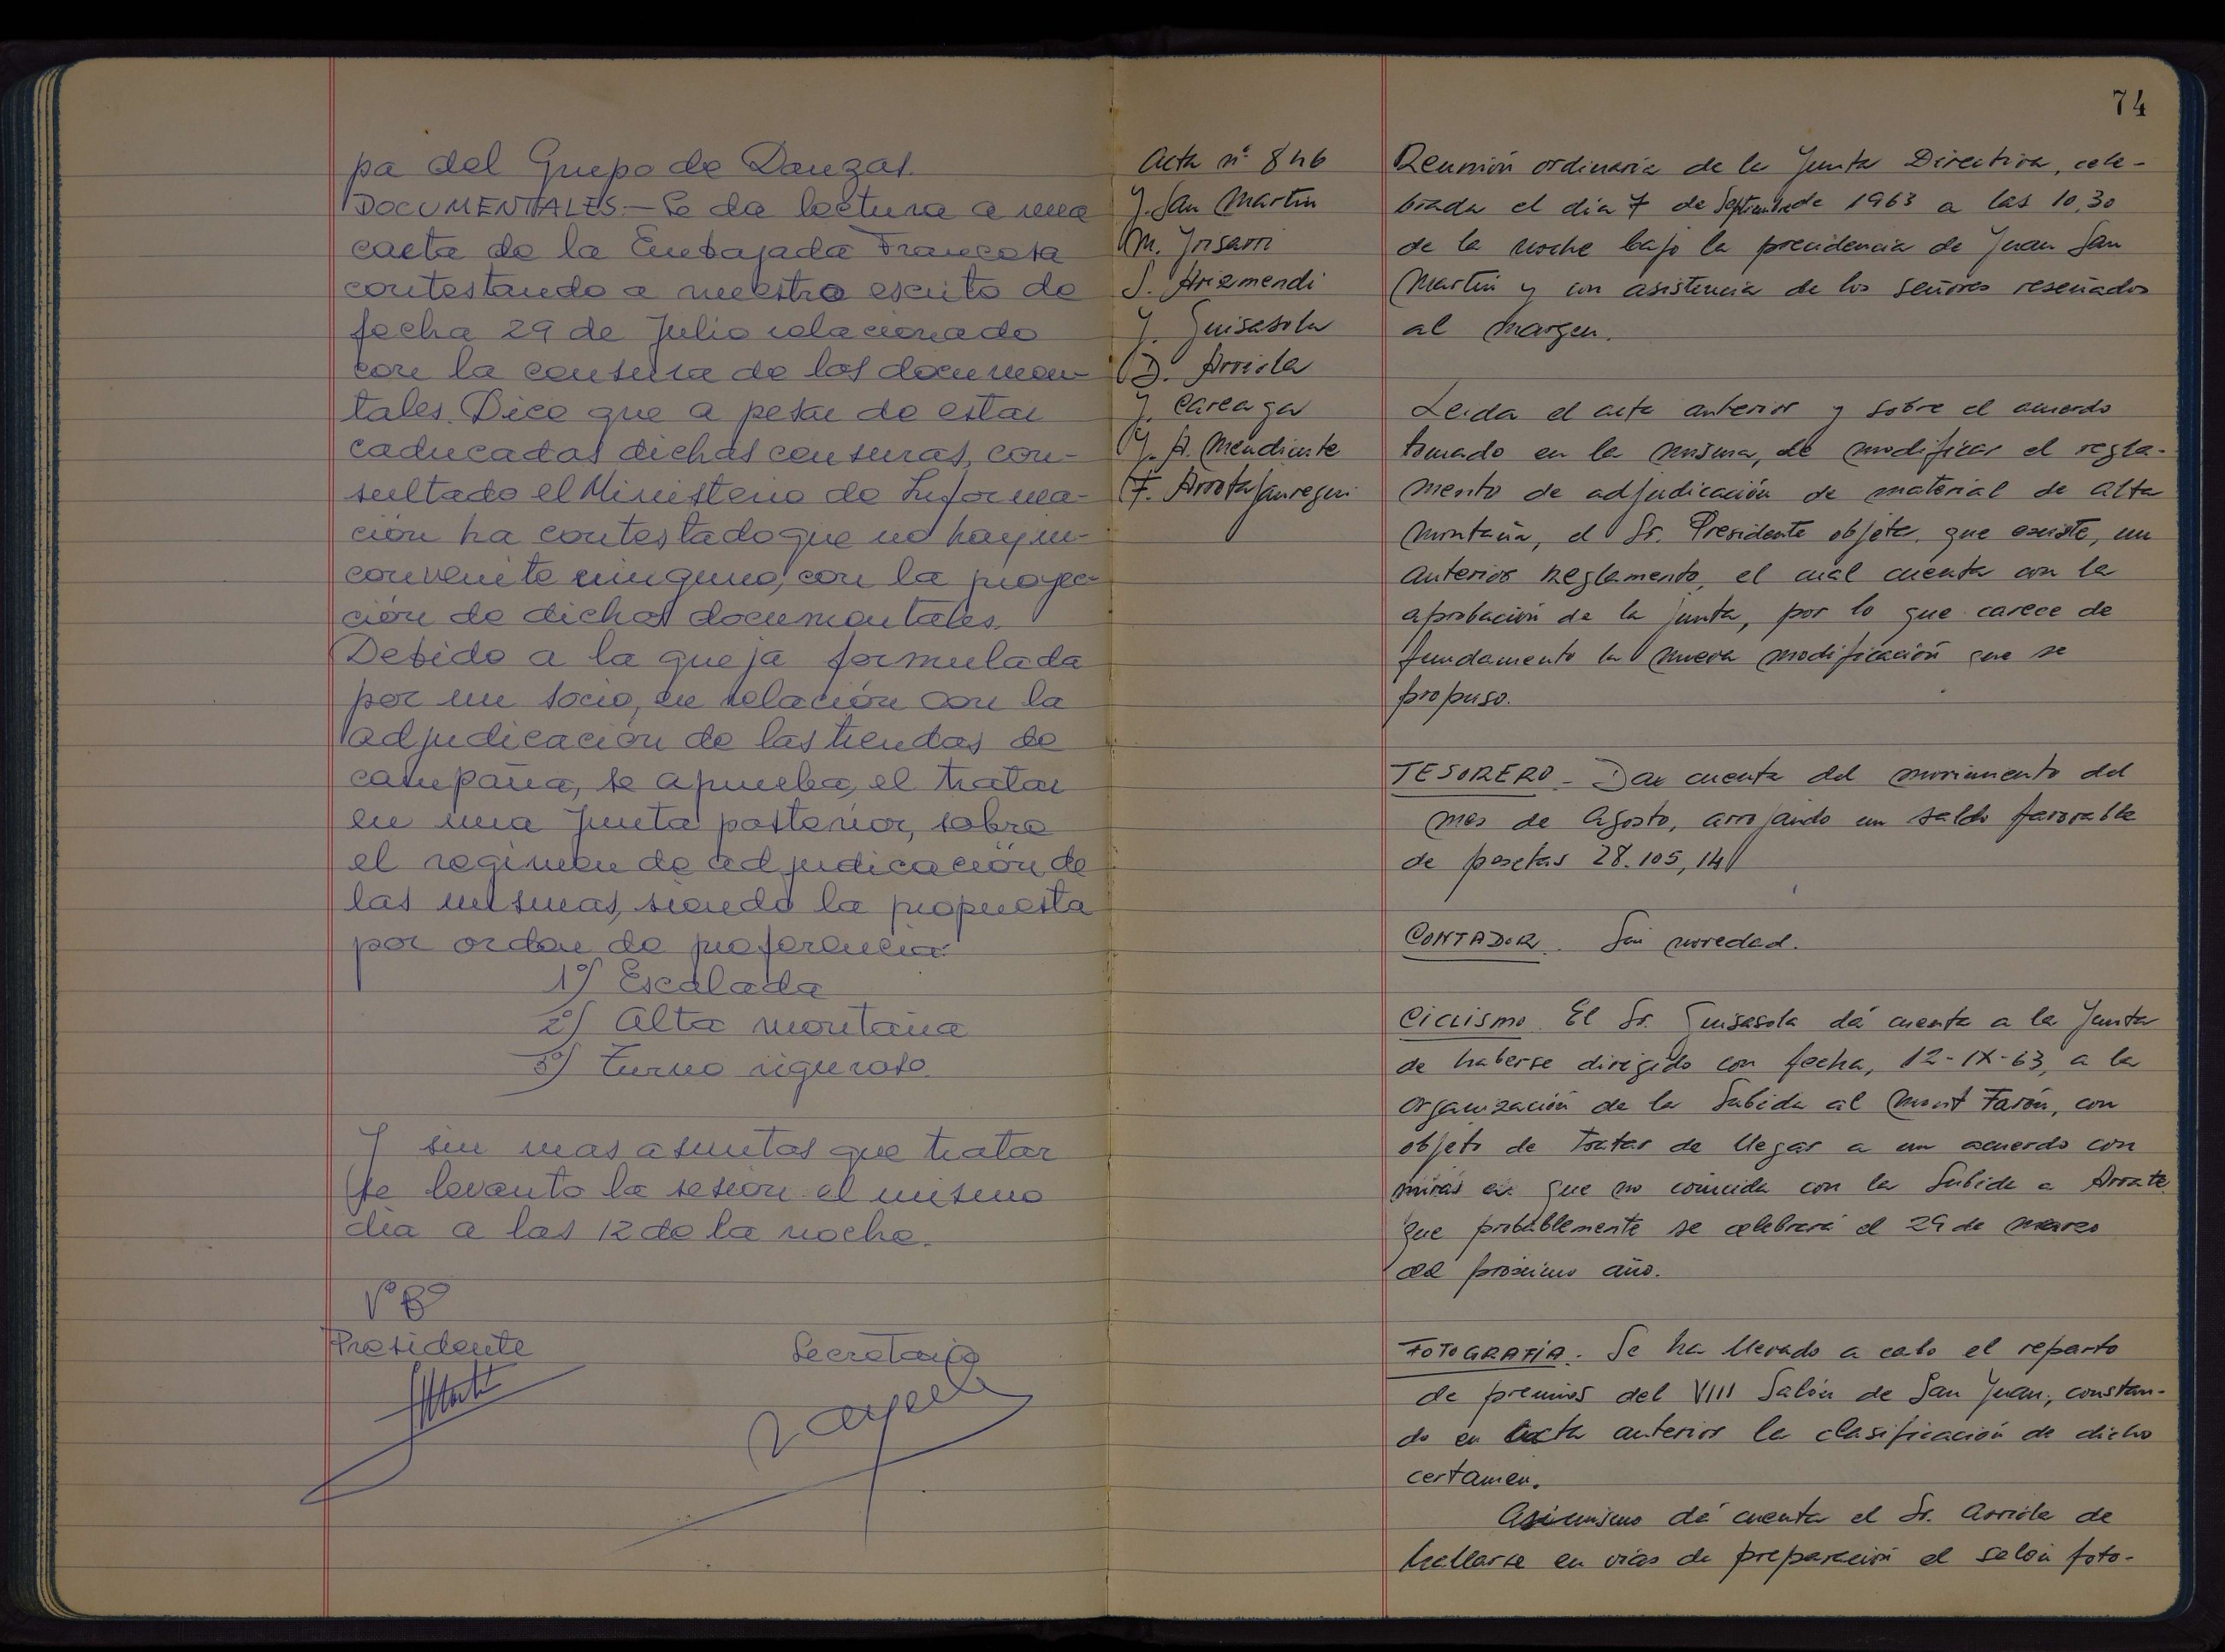 pa del Grupo de Danzas.
DOCUMENTALES.- Se da lectura a una
carta de la Embajada Francesa
contestando a nuestro escrito de
fecha 29 de Julio relacionado
con la censura de los documen-
tales. Dice que a pesar de estar
caducadas dichas censuras, con-
sultado el Ministerio de Informa-
ción ha contestado que no hay in-
convenite ninguno, con la proyec-
ción de dichos documentales.
Debido a la queja formulada
por un socio, en relación con la
adjudicación de las tiendas de
campaña, se aprueba, el tratar
en una Junta posterior, sobre
el regimen de adjudicación de
las mismas, siendo la propuesta
por orden de preferencia:
1º) Escalada
2º) Alta montaña
3º) Turno riguroso.
Y sin mas asuntos que tratar
se levanto la sesion el mismo
dia a las 12 de la noche.
Vº Bº
Presidente
Secretario
74
Acta nº 846
J. San Martin
M. Yrisarri
S. Arizmendi
J. Guisasola
D. Arriola
J. Careaga
J. A. Mendicute
F. Arrotajauregui
Reunión ordinaria de la Junta Directiva, cele-
brada el día 7 de Septiembre de 1963 a las 10,30
de la noche bajo la presidencia de Juan San
Martin y con asistencia de los señores reseñados
al margen.
Leida el acta anterior y sobre el acuerdo
tomado en la misma, de modificar el regla-
mento de adjudicación de material de alta
montaña, el Sr. Presidente objeta, que existe, un
anterior reglamento, el cual cuenta con la
aprobación de la junta, por lo que carece de
fundamento la nueva modificación que se
propuso.
TESORERO - Da cuenta del movimiento del
mes de Agosto, arrojando un saldo favorable
de pesetas 28.105,14
CONTADOR. Sin novedad.
Ciclismo. El Sr. Guisasola dá cuenta a la Junta
de haberse dirigido con fecha, 12-IX-63, a la
Organización de la Subida al Mont Farón, con
objeto de tratar de llegar a un acuerdo con
miras a que no coincida con la Subida a Arrate
que probablemente se celebrará el 29 de marzo
del próximo año.
FOTOGRAFIA. Se ha llevado a cabo el reparto
de premios del VIII Salón de San Juan, constan-
do en acta anterior la clasificación de dicho
certamen.
Asimismo dá cuenta el Sr. Arriola de
hallarse en vías de preparación el salón foto-